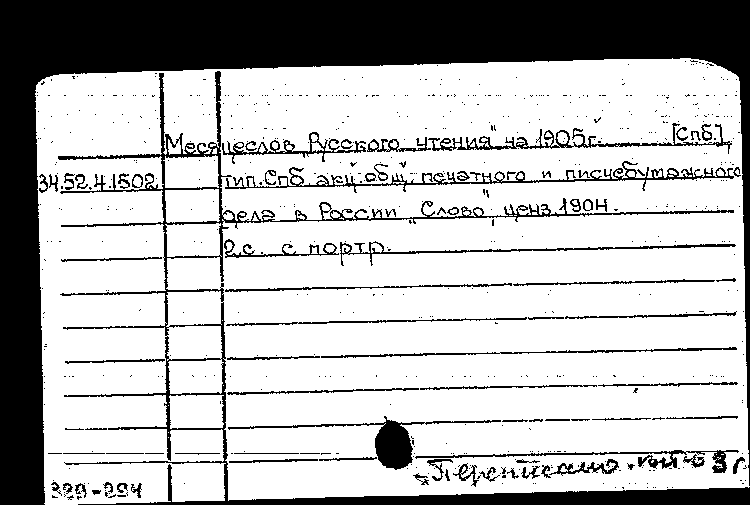 Месяцеслов „Русского чтения" на 1905г. [Спб.],
34.52.4.1502 тип. Спб. акц. общ. печатного и писчебумажного
дела в России „Слово", ценз. 1904.
2 с. с портр.
329-294